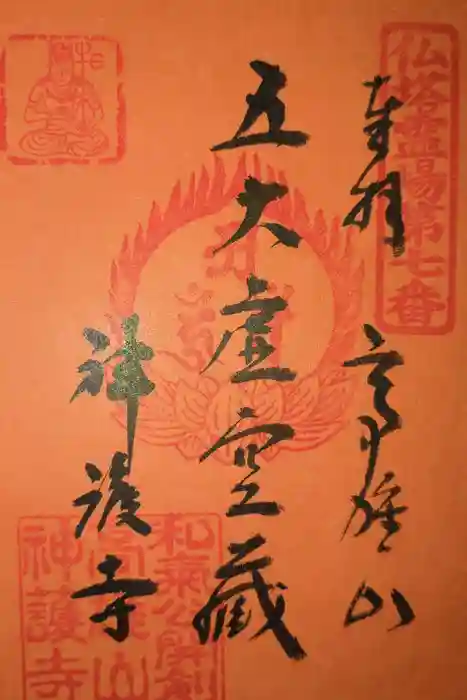 仏塔霊場第七番
奉拝 高雄山
五大虚空蔵
神護寺
和氣公開創
高雄山
神護寺